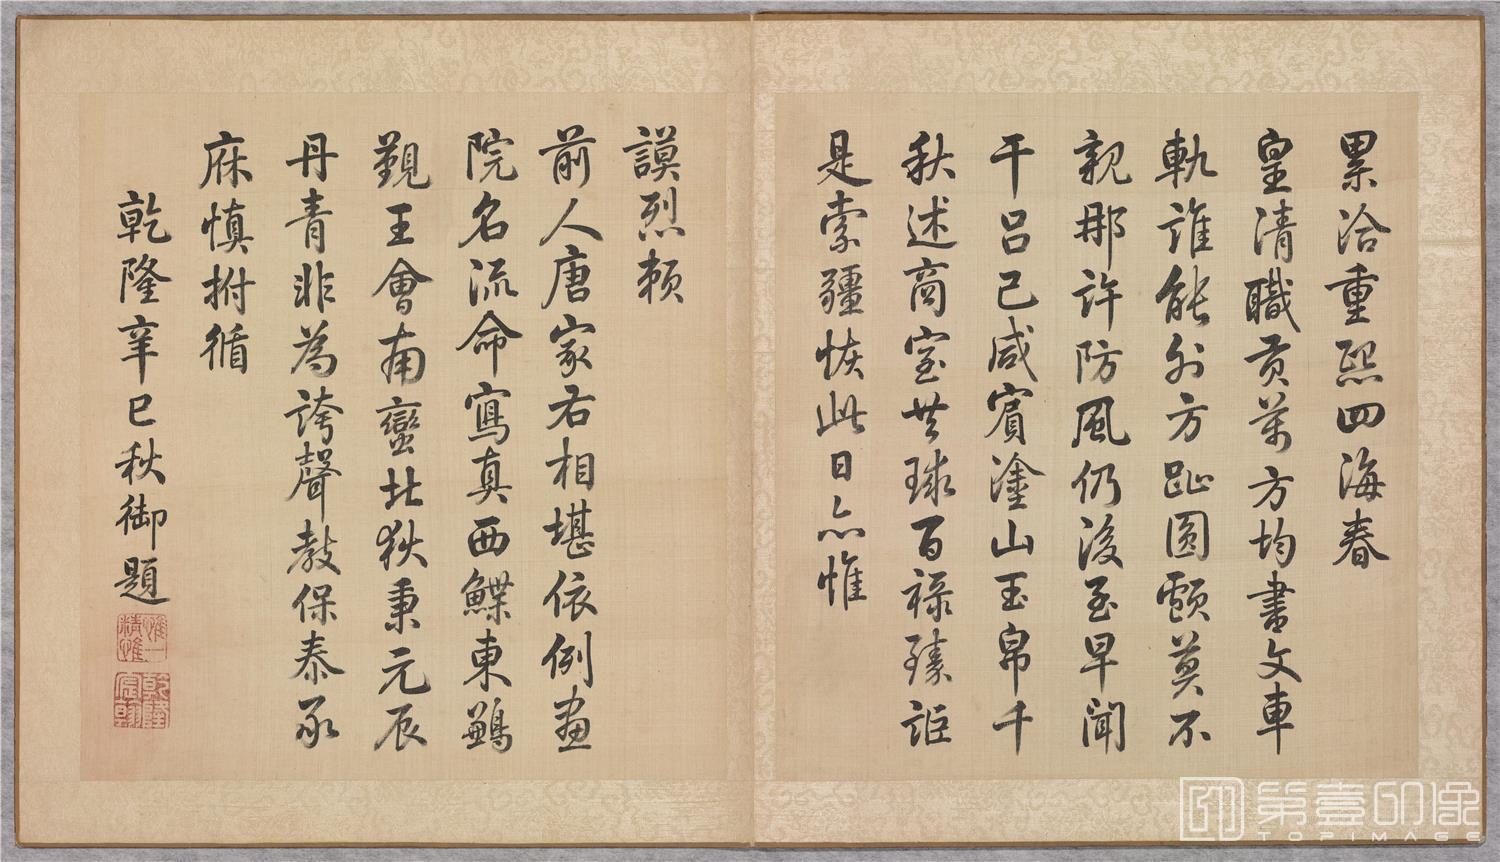 累洽重熙四海春
皇清職貢萬方均書文車
軌誰能外方趾圓顱莫不
親那許防風仍後至早聞
干呂已咸賓塗山玉帛千
秋述商室共球百祿臻詎
是索疆恢此日亦惟
謨烈賴
前人唐家右相堪依例畫
院名流命寫真西鰈東鶼
覲王會南蠻北狄秉元辰
丹青非為誇聲教保泰承
庥慎拊循
乾隆辛巳秋御題
惟精惟一
乾隆宸翰
第壹印像
TOPIMAGE